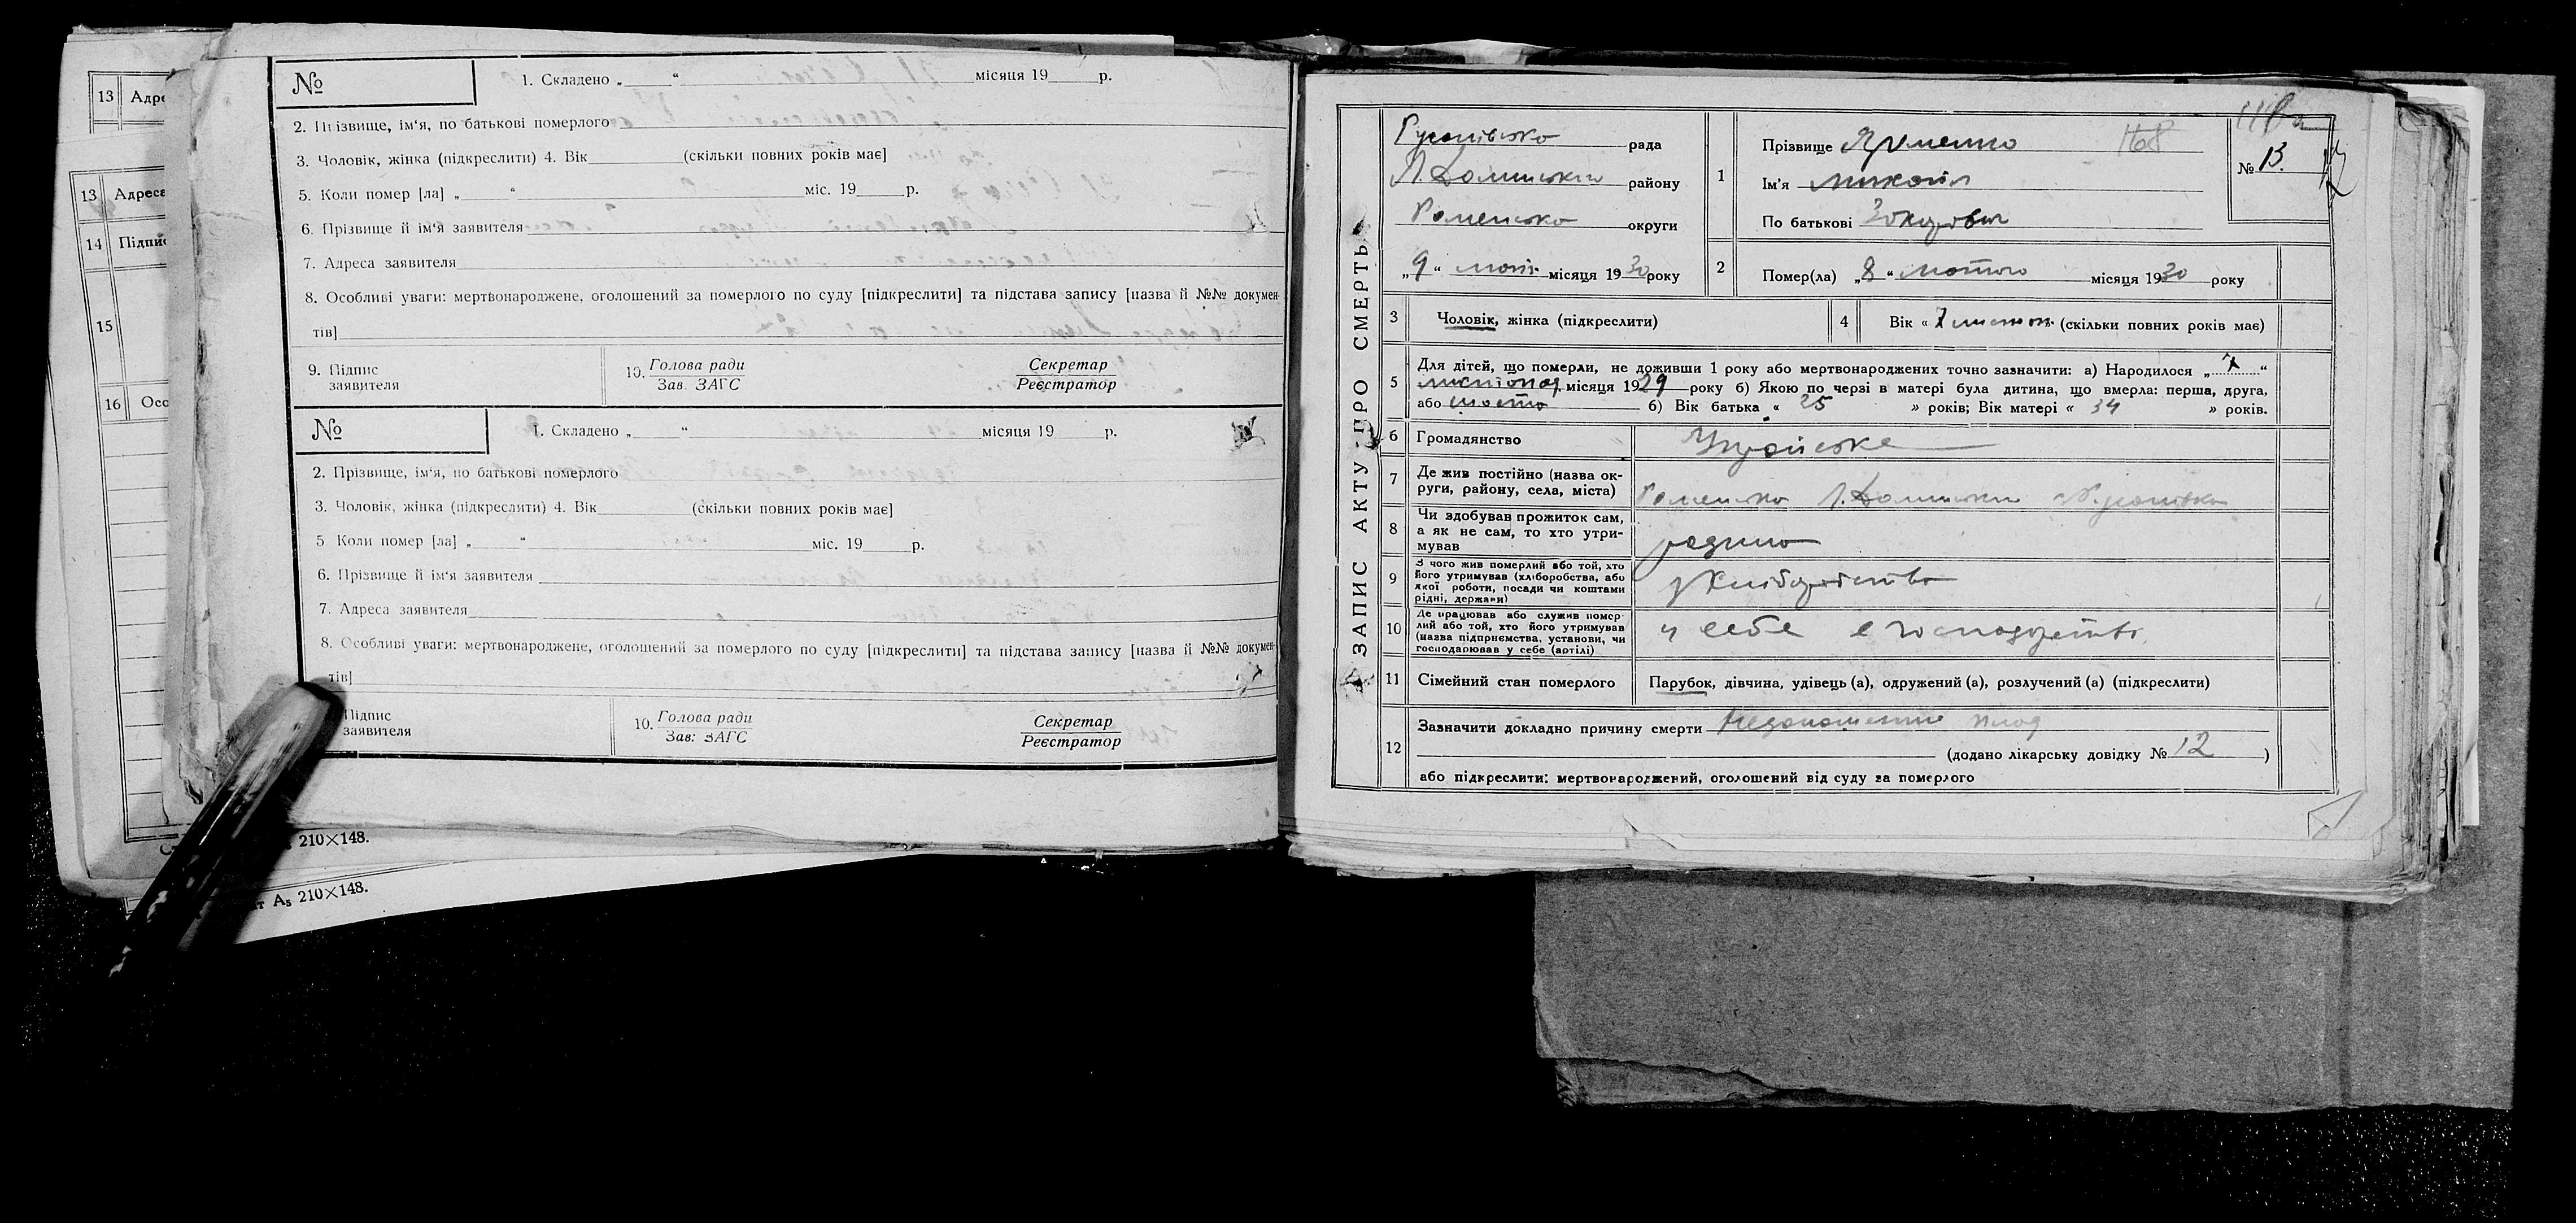 №
1. Складено „ “ місяця 19 р.
2. Прізвище, ім‘я, по батькові померлого
3. Чоловік, жінка (підкреслити) 4. Вік (скільки повних років має]
5. Коли помер [ла] „ “ міс. 19 р.
6. Прізвище й ім‘я заявителя
7. Адреса заявителя
8. Особливі уваги: мертвонароджене, оголошений за померлого по суду [підкреслити] та підстава запису [назва й №№ докумен-
тів]
9. Підпис
заявителя
10. Голова ради
Зав. ЗАГС
Секретар
Реєстратор
№
1. Складено „ “ місяця 19 р.
2. Прізвище, ім‘я, по батькові померлого
3. Чоловік, жінка (підкреслити) 4. Вік (скільки повних років має]
5 Коли помер [ла] „ “ міс. 19 р.
6. Прізвище й ім‘я заявителя
7. Адреса заявителя
8. Особливі уваги: мертвонароджене, оголошений за померлого по суду [підкреслити] та підстава запису [назва й №№ докумен-
тів]
Підпис
заявителя
10. Голова ради
Зав: ЗАГС
Секретар
Реєстратор
13 Адре
13 Адреса
14 Підпис
15
16 Осо
210×148.
т А₅ 210×148.
ЗАПИС АКТУ ПРО СМЕРТЬ
рада
району
Роменсько округи
„9“ місяця 1930 року
1
Прізвище Яременко 168
Ім'я Микола
По батькові
№ 13.
2
Помер(ла) „8“ лютого місяця 1930 року
3 Чоловік, жінка (підкреслити)
4 Вік « (скільки повних років має)
5 Для дітей, що померли, не доживши 1 року або мертвонароджених точно зазначити: а) Народилося „ “
листопад місяця 1929 року б) Якою по черзі в матері була дитина, що вмерла: перша, друга,
або шоста б) Вік батька « 25 » років; Вік матері « 34 » років.
6 Громадянство Українське
7 Де жив постійно (назва ок-
руги, району, села, міста)
Роменсько
8 Чи здобував прожиток сам,
а як не сам, то хто утри-
мував
родина
9 З чого жив померлий або той, хто
його утримував (хліборобства, або
якої роботи, посади чи коштами
рідні, держави)
з хліборобства
10 Де працював або служив помер-
лий або той, хто його утримував
(назва підприємства, установи, чи
господарював у себе (артілі)
у себе в господарстві
11 Сімейний стан померлого Парубок, дівчина, удівець (а), одружений (а), розлучений (а) (підкреслити)
12 Зазначити докладно причину смерти Недоношений плод
(додано лікарську довідку № 12 )
або підкреслити: мертвонароджений, оголошений від суду за померлого